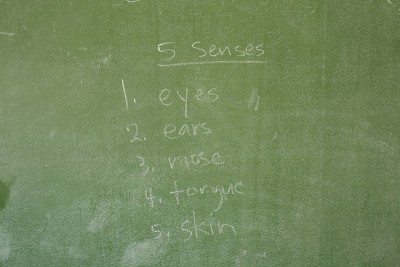 5 Senses
1. eyes
2. ears
3. nose
4. tongue
5. skin